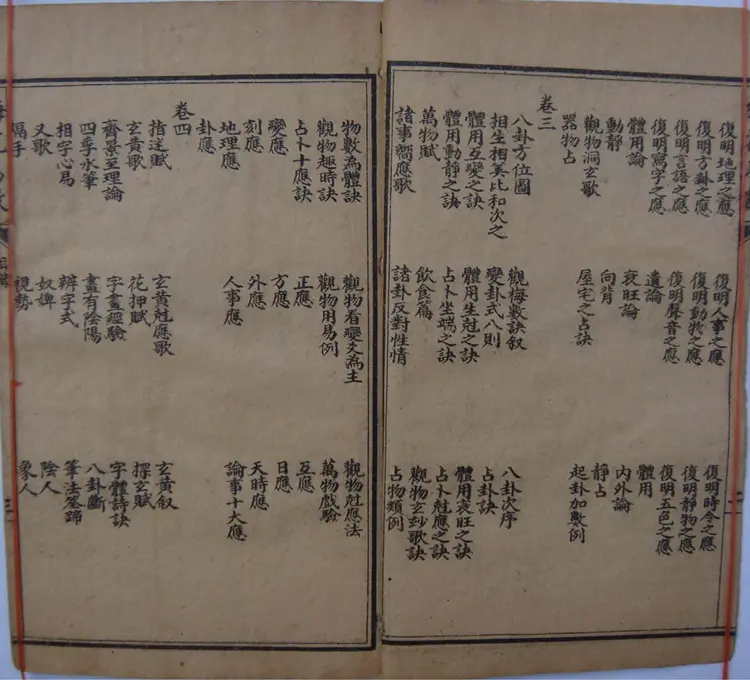 復明地理之應 復明人事之應 復明時令之應
復明方卦之應 復明動物之應 復明靜物之應
復明言語之應 復明聲音之應 復明五色之應
復明寫字之應 遺論 體用
體用論 衰旺論 內外論
動靜 向背 靜占
觀物洞玄歌 屋宅之占訣 起卦加數例
器物占
卷三
八卦方位圖 觀梅數訣叙 八卦次序
相生相美比和次之 變卦式八則 占卦訣
體用互變之訣 體用生尅之訣 體用衰旺之訣
體用動靜之訣 占卜坐端之訣 占卜尅應之訣
萬物賦 飲食篇 觀物玄妙歌訣
諸事嚮應歌 諸卦反對性情 占物類例
物數為體訣 觀物看變爻為主 觀物尅應法
觀物趣時訣 觀物用易例 萬物戲驗
占卜十應訣 正應 互應
變應 方應 日應
刻應 外應 天時應
地理應 人事應 論事十大應
卦應
卷四
指迷賦 玄黃尅應歌 玄黃叙
玄黃歌 花押賦 探玄賦
齊景至理論 字畫經驗 字體詩訣
四季水筆 畫有陰陽 八卦斷
相字心易 辨字式 筆法筌蹄
又歌 奴婢 陰人
隔手 視勢 象人